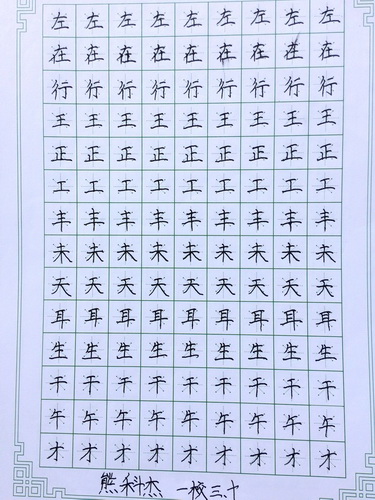 左左左左左左左左左
在在在在在在在在在
行行行行行行行行行
王王王王王王王王王
正正正正正正正正正
工工工工工工工工工
丰丰丰丰丰丰丰丰丰
未未未未未未未未未
天天天天天天天天天
耳耳耳耳耳耳耳耳耳
生生生生生生生生生
干干干干干干干干干
午午午午午午午午午
才才才才才才才才才
熊科杰 一校三十